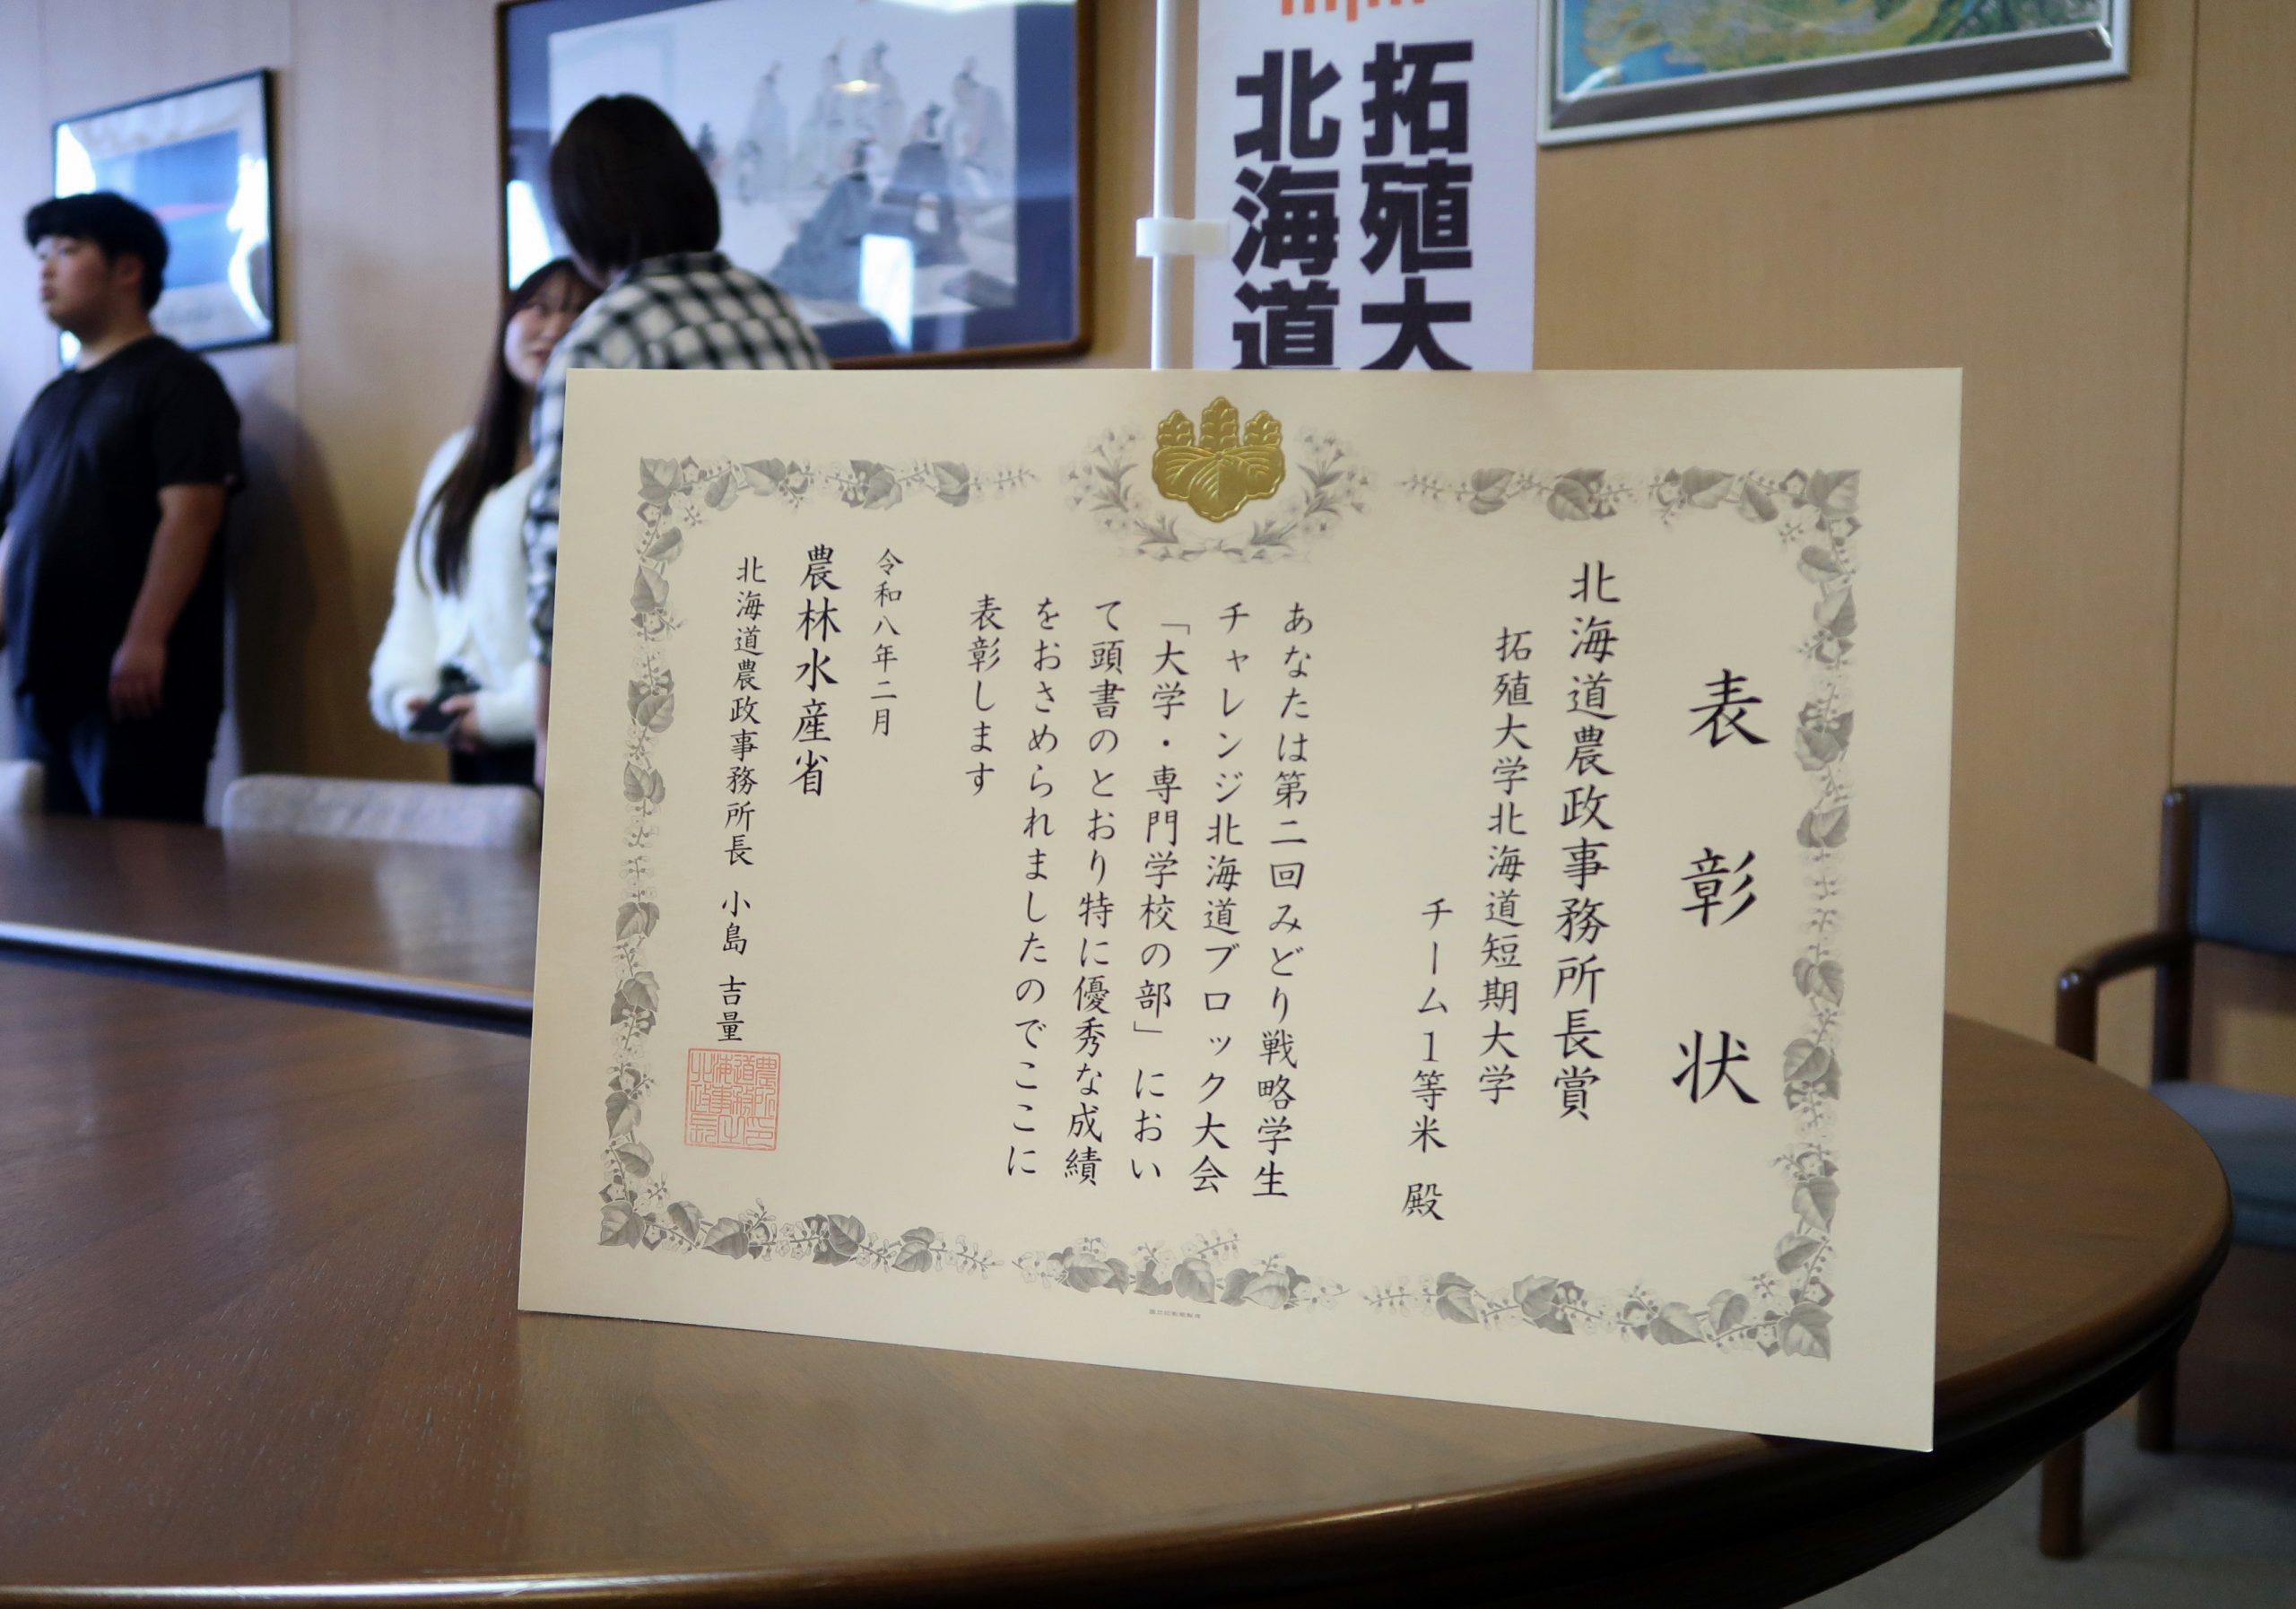 拓殖大
北海道
表彰状
北海道農政事務所長賞
拓殖大学北海道短期大学
チーム1等米 殿
あなたは第二回みどり戦略学生
チャレンジ北海道ブロック大会
「大学・専門学校の部」におい
て頭書のとおり特に優秀な成績
をおさめられましたのでここに
表彰します
令和八年二月
農林水産省
北海道農政事務所長 小島 吉量